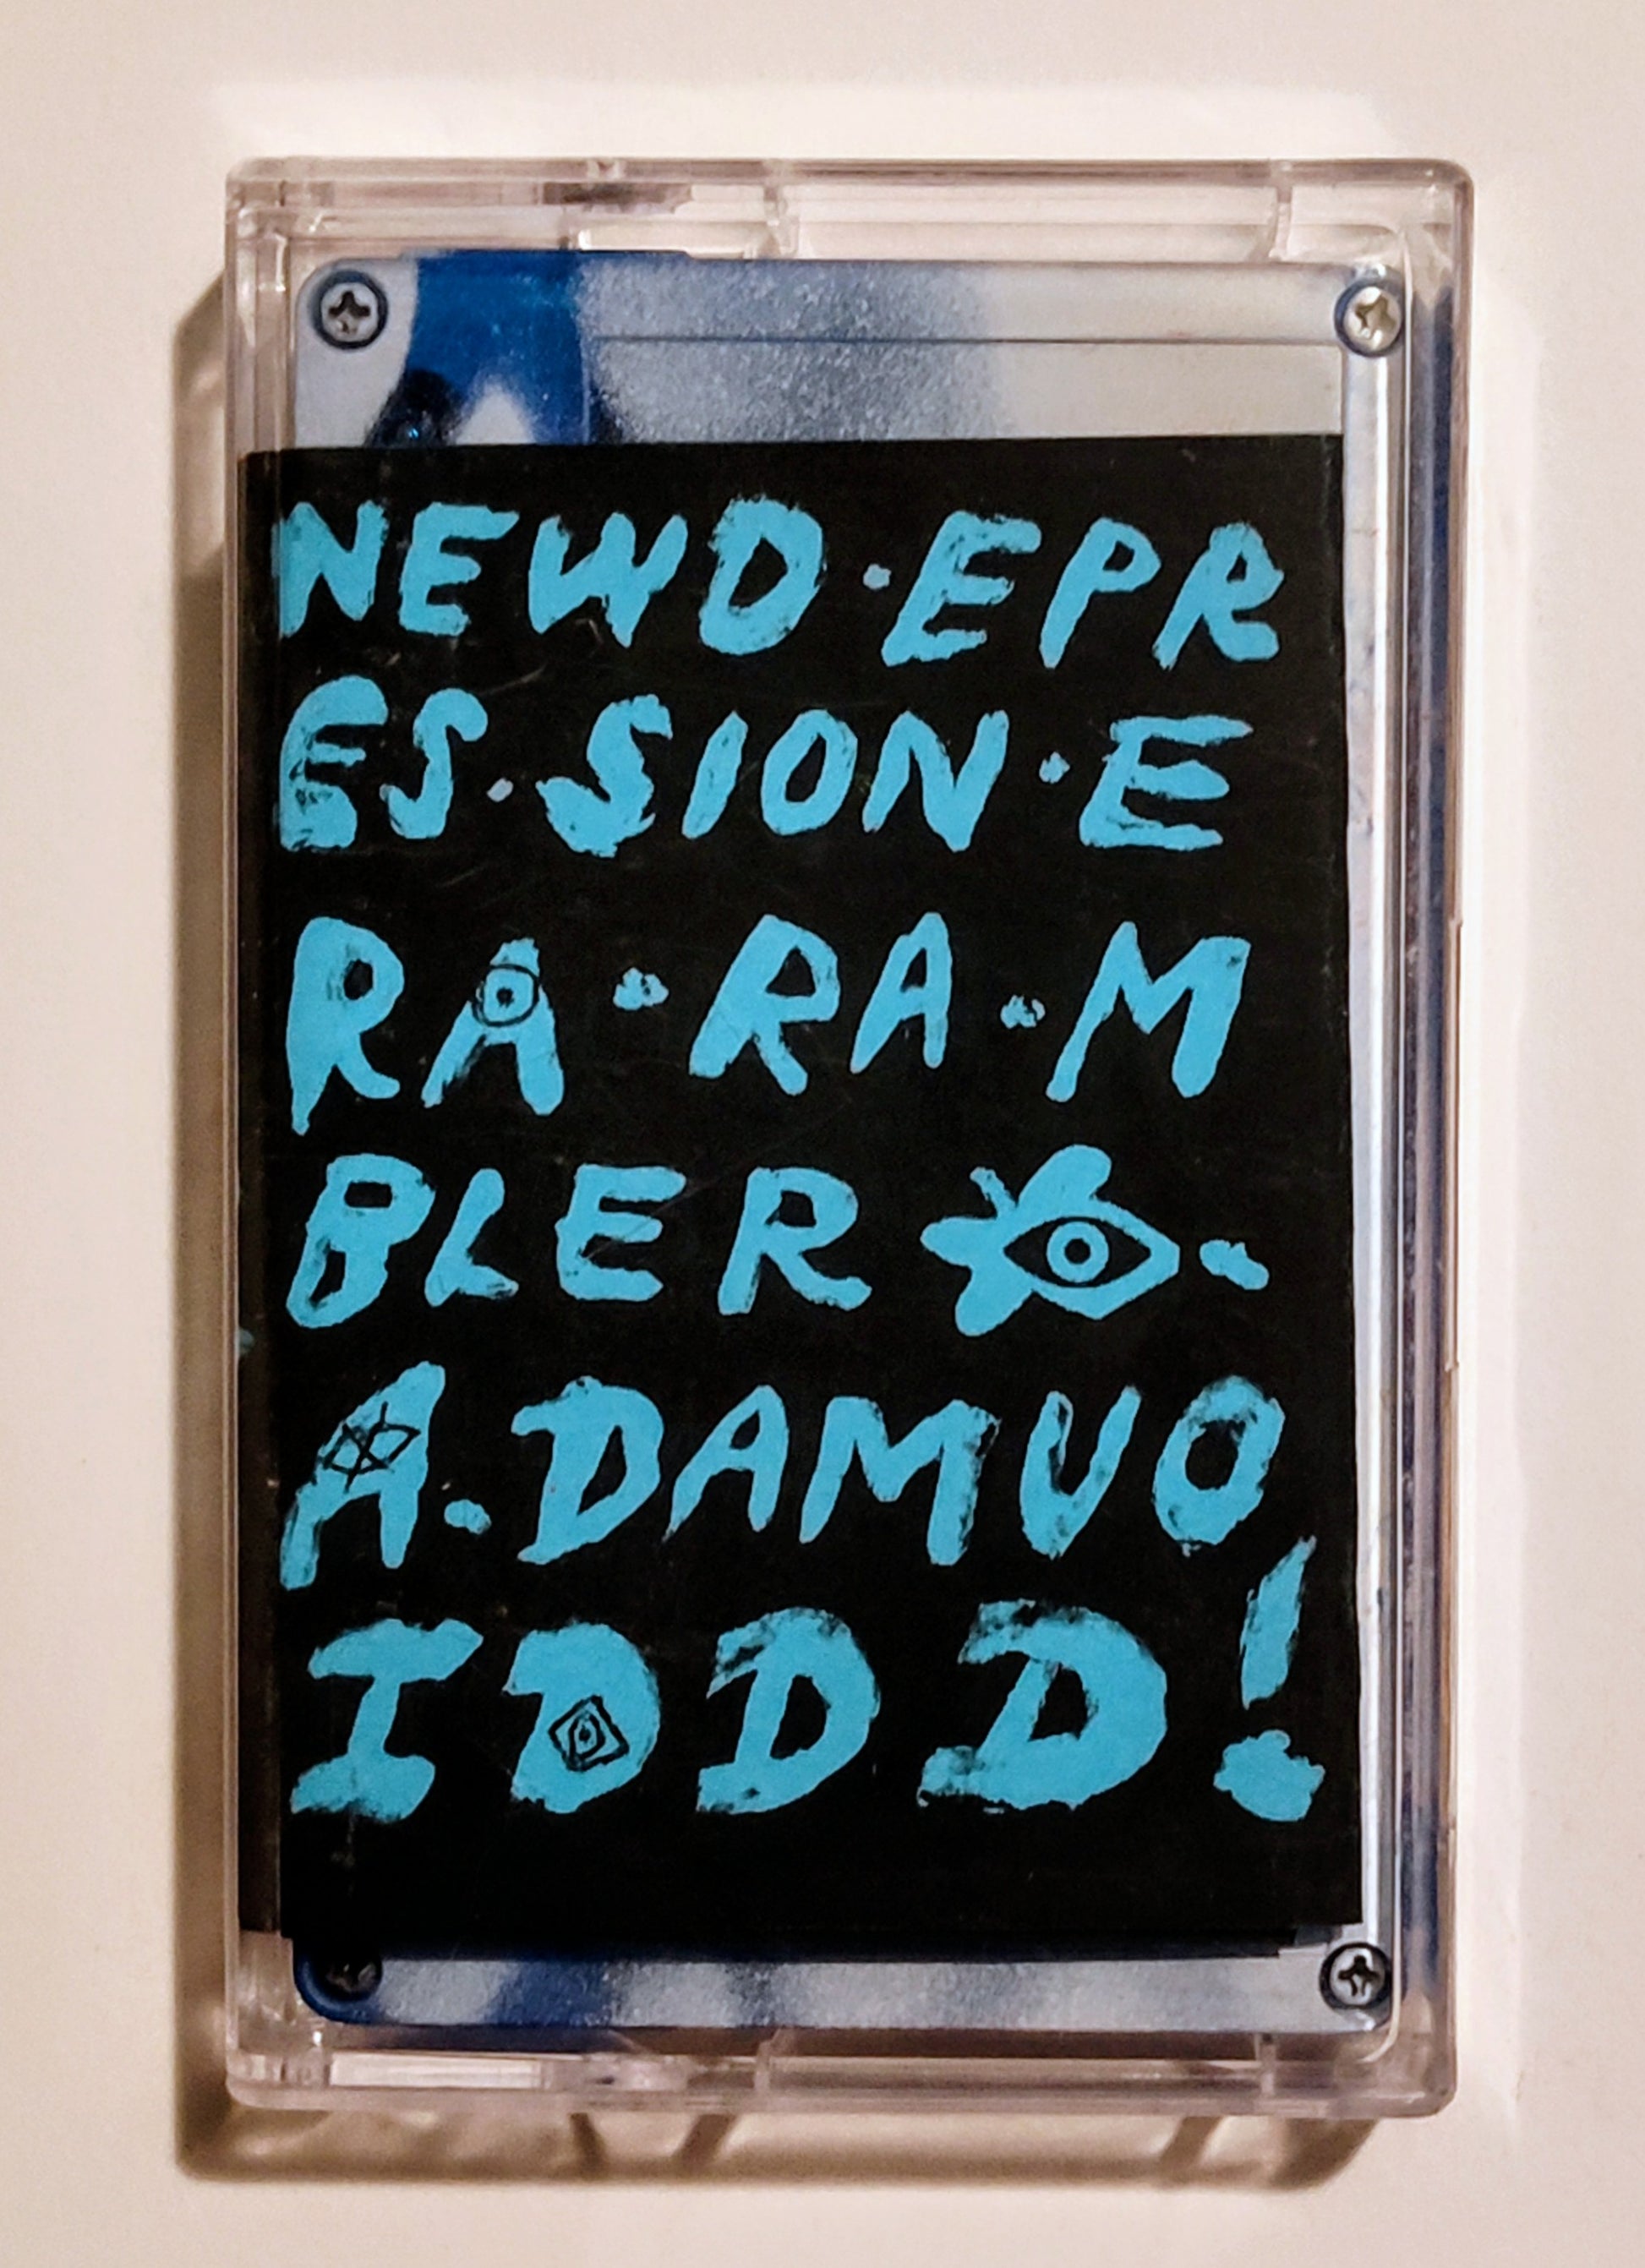 NEWD·EPR
ES·SION·E
RA·RA·M
BLER·
A.DAMUO
IDDD!